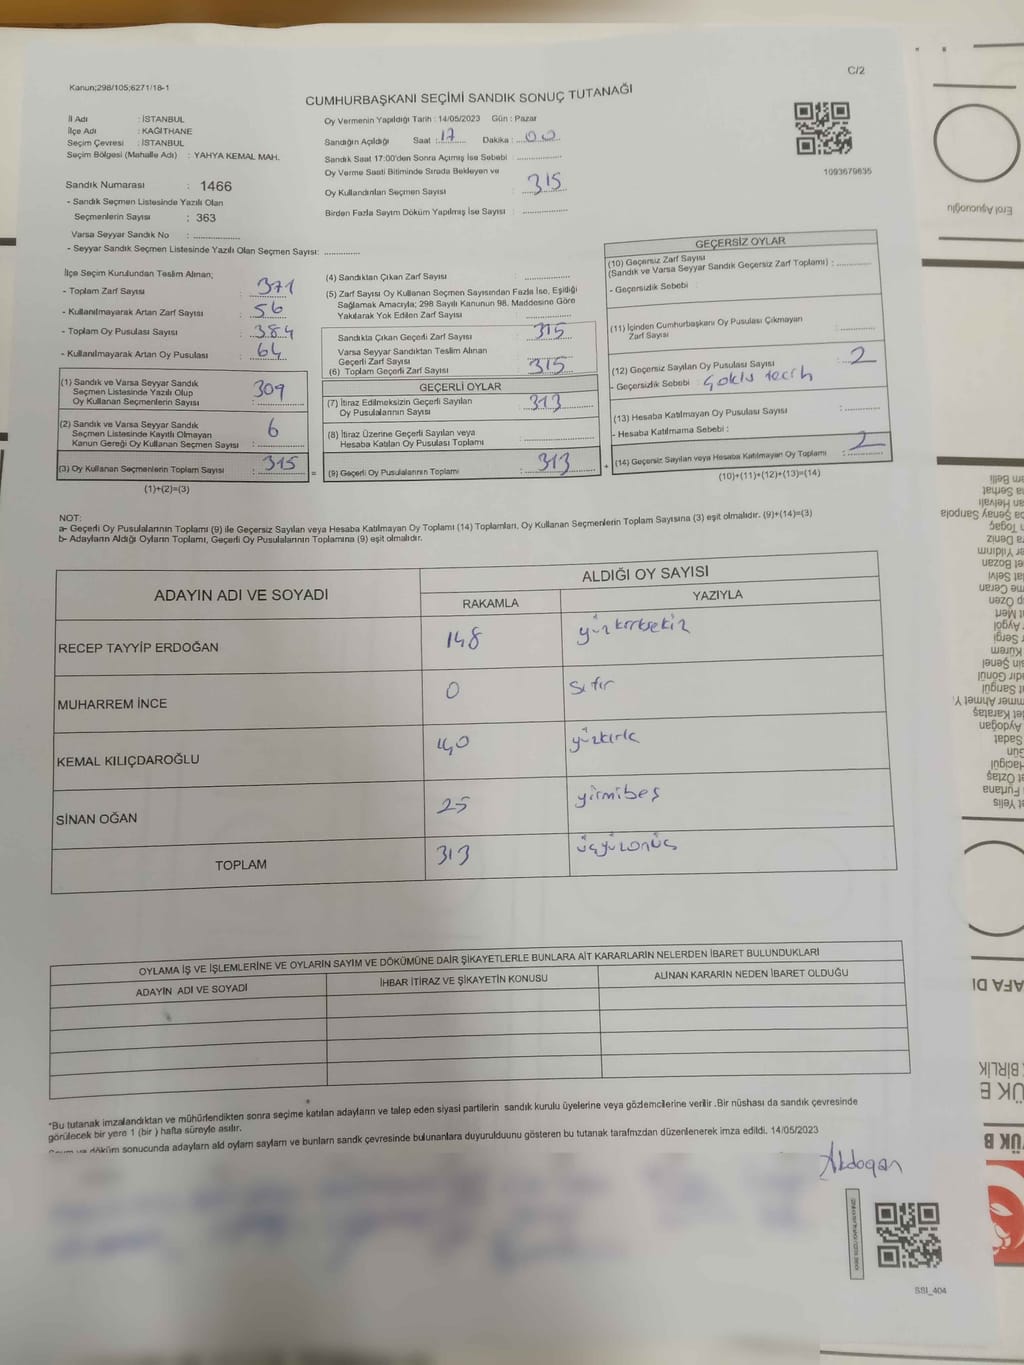 C/2
Kanun;298/105;6271/18-1
CUMHURBAŞKANI SEÇİMİ SANDIK SONUÇ TUTANAĞI
İl Adı : İSTANBUL
İlçe Adı : KAĞITHANE
Seçim Çevresi : İSTANBUL
Seçim Bölgesi (Mahalle Adı) : YAHYA KEMAL MAH.
Sandık Numarası : 1466
- Sandık Seçmen Listesinde Yazılı Olan
Seçmenlerin Sayısı : 363
Varsa Seyyar Sandık No : ..............
- Seyyar Sandık Seçmen Listesinde Yazılı Olan Seçmen Sayısı: ..............
Oy Vermenin Yapıldığı Tarih : 14/05/2023 Gün : Pazar
Sandığın Açıldığı Saat : 17 Dakika : 00
Sandık Saat 17:00'den Sonra Açımış İse Sebebi : ..............
Oy Verme Saati Bitiminde Sırada Bekleyen ve
Oy Kullandırılan Seçmen Sayısı : 315
Birden Fazla Sayım Döküm Yapılmış İse Sayısı : ..............
1093679635
İlçe Seçim Kurulundan Teslim Alınan;
- Toplam Zarf Sayısı : 371
- Kullanılmayarak Artan Zarf Sayısı : 56
- Toplam Oy Pusulası Sayısı : 384
- Kullanılmayarak Artan Oy Pusulası : 64
(1) Sandık ve Varsa Seyyar Sandık
Seçmen Listesinde Yazılı Olup
Oy Kullanan Seçmenlerin Sayısı : 309
(2) Sandık ve Varsa Seyyar Sandık
Seçmen Listesinde Kayıtlı Olmayan
Kanun Gereği Oy Kullanan Seçmen Sayısı : 6
(3) Oy Kullanan Seçmenlerin Toplam Sayısı : 315
(1)+(2)=(3)
(4) Sandıktan Çıkan Zarf Sayısı : ..............
(5) Zarf Sayısı Oy Kullanan Seçmen Sayısından Fazla İse, Eşidiği
Sağlamak Amacıyla; 298 Sayılı Kanunun 98. Maddesine Göre
Yakılarak Yok Edilen Zarf Sayısı : ..............
Sandıkta Çıkan Geçerli Zarf Sayısı : 315
Varsa Seyyar Sandıktan Teslim Alınan
Geçerli Zarf Sayısı
(6) Toplam Geçerli Zarf Sayısı : 315
GEÇERLİ OYLAR
(7) İtiraz Edilmeksizin Geçerli Sayılan
Oy Pusulalarının Sayısı : 313
(8) İtiraz Üzerine Geçerli Sayılan veya
Hesaba Katılan Oy Pusulası Toplamı : ..............
= (9) Geçerli Oy Pusulalarının Toplamı : 313
GEÇERSİZ OYLAR
(10) Geçersiz Zarf Sayısı
(Sandık ve Varsa Seyyar Sandık Geçersiz Zarf Toplamı) : ..............
- Geçersizlik Sebebi :
(11) İçinden Cumhurbaşkanı Oy Pusulası Çıkmayan
Zarf Sayısı : ..............
(12) Geçersiz Sayılan Oy Pusulası Sayısı : 2
- Geçersizlik Sebebi : Çoklu tercih
(13) Hesaba Katılmayan Oy Pusulası Sayısı : ..............
- Hesaba Katılmama Sebebi :
+ (14) Geçersiz Sayılan veya Hesaba Katılmayan Oy Toplamı : 2
(10)+(11)+(12)+(13)=(14)
NOT:
a- Geçerli Oy Pusulalarının Toplamı (9) ile Geçersiz Sayılan veya Hesaba Katılmayan Oy Toplamı (14) Toplamları, Oy Kullanan Seçmenlerin Toplam Sayısına (3) eşit olmalıdır. (9)+(14)=(3)
b- Adayların Aldığı Oyların Toplamı, Geçerli Oy Pusulalarının Toplamına (9) eşit olmalıdır.
ADAYIN ADI VE SOYADI ALDIĞI OY SAYISI
RAKAMLA YAZIYLA
RECEP TAYYİP ERDOĞAN 148 yüzkırksekiz
MUHARREM İNCE 0 sıfır
KEMAL KILIÇDAROĞLU 140 yüzkırk
SİNAN OĞAN 25 yirmibeş
TOPLAM 313 üçyüzonüç
OYLAMA İŞ VE İŞLEMLERİNE VE OYLARIN SAYIM VE DÖKÜMÜNE DAİR ŞİKAYETLERLE BUNLARA AİT KARARLARIN NELERDEN İBARET BULUNDUKLARI
ADAYIN ADI VE SOYADI İHBAR İTİRAZ VE ŞİKAYETİN KONUSU ALINAN KARARIN NEDEN İBARET OLDUĞU
*Bu tutanak imzalandıktan ve mühürlendikten sonra seçime katılan adayların ve talep eden siyasi partilerin sandık kurulu üyelerine veya gözlemcilerine verilir .Bir nüshası da sandık çevresinde
görülecek bir yere 1 (bir ) hafta süreyle asılır.
döküm sonucunda adayların ald oyların sayların ve bunların sandk çevresinde bulunanlara duyurulduunu gösteren bu tutanak tarafmzdan düzenlenerek imza edildi. 14/05/2023
Akdogan
SSI_404